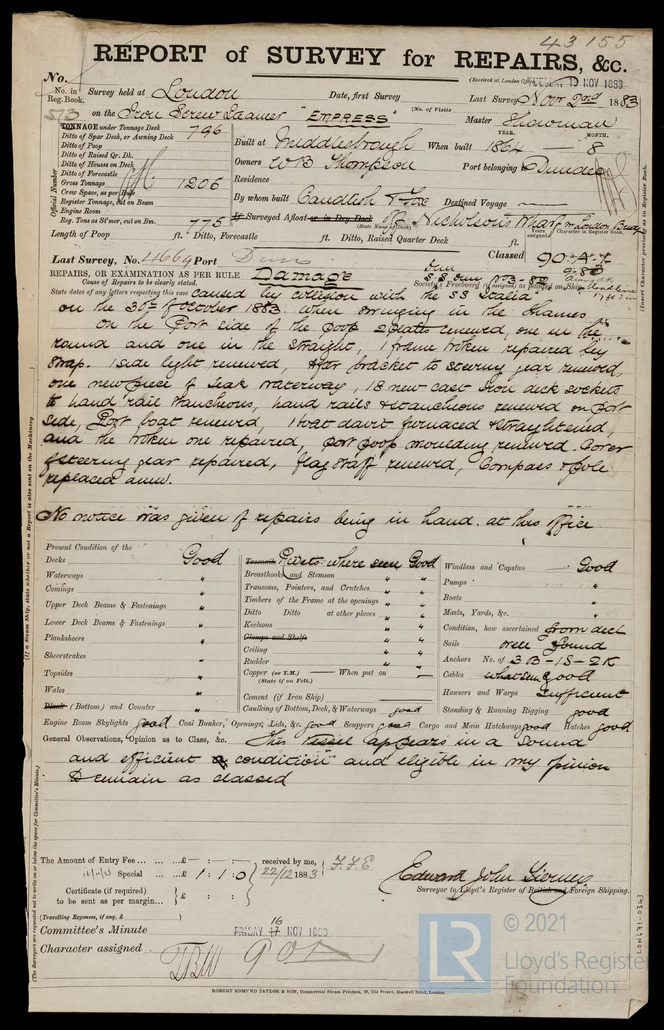 43155
REPORT of SURVEY for REPAIRS, &c.
(Received at London Office TUESDAY 13 NOV 1883
No.
No. in Reg. Book.
573
Survey held at London Date, first Survey Last Survey Novr 2nd 1883
(No. of Visits
on the Iron Screw Steamer "EMPRESS" Master Showman
TONNAGE under Tonnage Deck 796
Ditto of Spar Deck, or Awning Deck
Ditto of Poop
Ditto of Raised Qr. Dk.
Ditto of Houses on Deck
Ditto of Forecastle
Gross Tonnage 1205
Crew Space, as per Rule
Register Tonnage, cut on Beam
Engine Room
Reg. Tons as St'mer, cut on Bm. 775
Official Number
YEAR. MONTH.
Built at Middlesbrough When built 1864 - 8
Owners W B Thompson Port belonging to Dundee
Residence
By whom built Candlish & Fox Destined Voyage
If Surveyed Afloat or in Dry Dock Off Nicholson's Wharf nr London Bridge
(State Name of Dock)
Years assigned Character in Register Book.
Length of Poop ft. Ditto, Forecastle ft. Ditto, Raised Quarter Deck ft.
Last Survey, No. 4664 Port Dun
Classed 90-A-1
9.82
Dun
S.S. Dun No 3-82
REPAIRS, OR EXAMINATION AS PER RULE Damage
Society's Freeboard (if assigned) as painted on Ship
Cause of Repairs to be clearly stated.
State dates of any letters respecting this case
caused by collision with the SS "Italia"
on the 30th of October 1883 when swinging in the Thames
on the Port side of the poop 2 plates renewed, one in the
round and one in the straight, 1 frame broken repaired by
strap. 1 side light renewed, After bracket to steering gear renewed,
one new piece of teak waterway, 18 new cast Iron deck sockets
to hand rail stanchions, hand rails & stanchions renewed on port
side, Port boat renewed, 1 boat davit furnaced & straightened,
and the broken one repaired, port poop moulding renewed. Cover
of steering gear repaired, flag staff renewed, Compass & pole
replaced anew.
No notice was given of repairs being in hand. at this Office
Present Condition of the
Decks Good
Waterways "
Comings "
Upper Deck Beams & Fastenings "
Lower Deck Beams & Fastenings "
Planksheers "
Sheerstrakes "
Topsides "
Wales "
(Bottom) and Counter "
Treenails Rivets where seen Good
Breasthooks and Stemson " "
Transoms, Pointers, and Crutches " "
Timbers of the Frame at the openings " "
Ditto Ditto at other places " "
Keelsons " "
Clamps and Shelfs
Ceiling " "
Rudder " "
Copper (or Y.M.) — When put on —
(State if on Felt.)
Cement (if Iron Ship)
Caulking of Bottom, Deck, & Waterways good
Windlass and Capstan Good
Pumps "
Boats "
Masts, Yards, &c. "
Condition, how ascertained from deck
Sails were found
Anchors No. of 3 B-1S-2K
Cables what seen good
Hawsers and Warps Sufficient
Standing & Running Rigging good
Engine Room Skylights good Coal Bunker, Openings, Lids, &c. good Scuppers good Cargo and Main Hatchways good Hatches good
General Observations, Opinion as to Class, &c. This vessel appears in a sound
and efficient condition and eligible in my opinion
to remain as classed
The Amount of Entry Fee ... ... £ - : - :
Special ... £ 1 : 1 : 0
received by me,
22/12 1883
Certificate (if required) to be sent as per margin... £ :
(Travelling Expenses, if any, £ )
Edward John
Surveyor to Lloyd's Register of British and Foreign Shipping.
Committee's Minute FRIDAY 16 17 NOV 1883
Character assigned
90A
ROBERT EDMUND TAYLOR & SON, Commercial Steam Printers, 19, Old Street, Goswell Road, London.
(If a Steam Ship, state whether or not a Report is also sent on the Machinery
(The Surveyors are requested not to write on or below the space for Committee's Minute.)
(Insert Character precisely as in Register Book.
LON671-0343
LR
© 2021
Lloyd's Register
Foundation